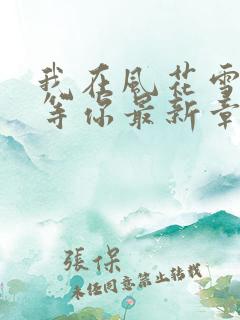 我在風花雪
等你最新章
張保
未经同意禁止转载